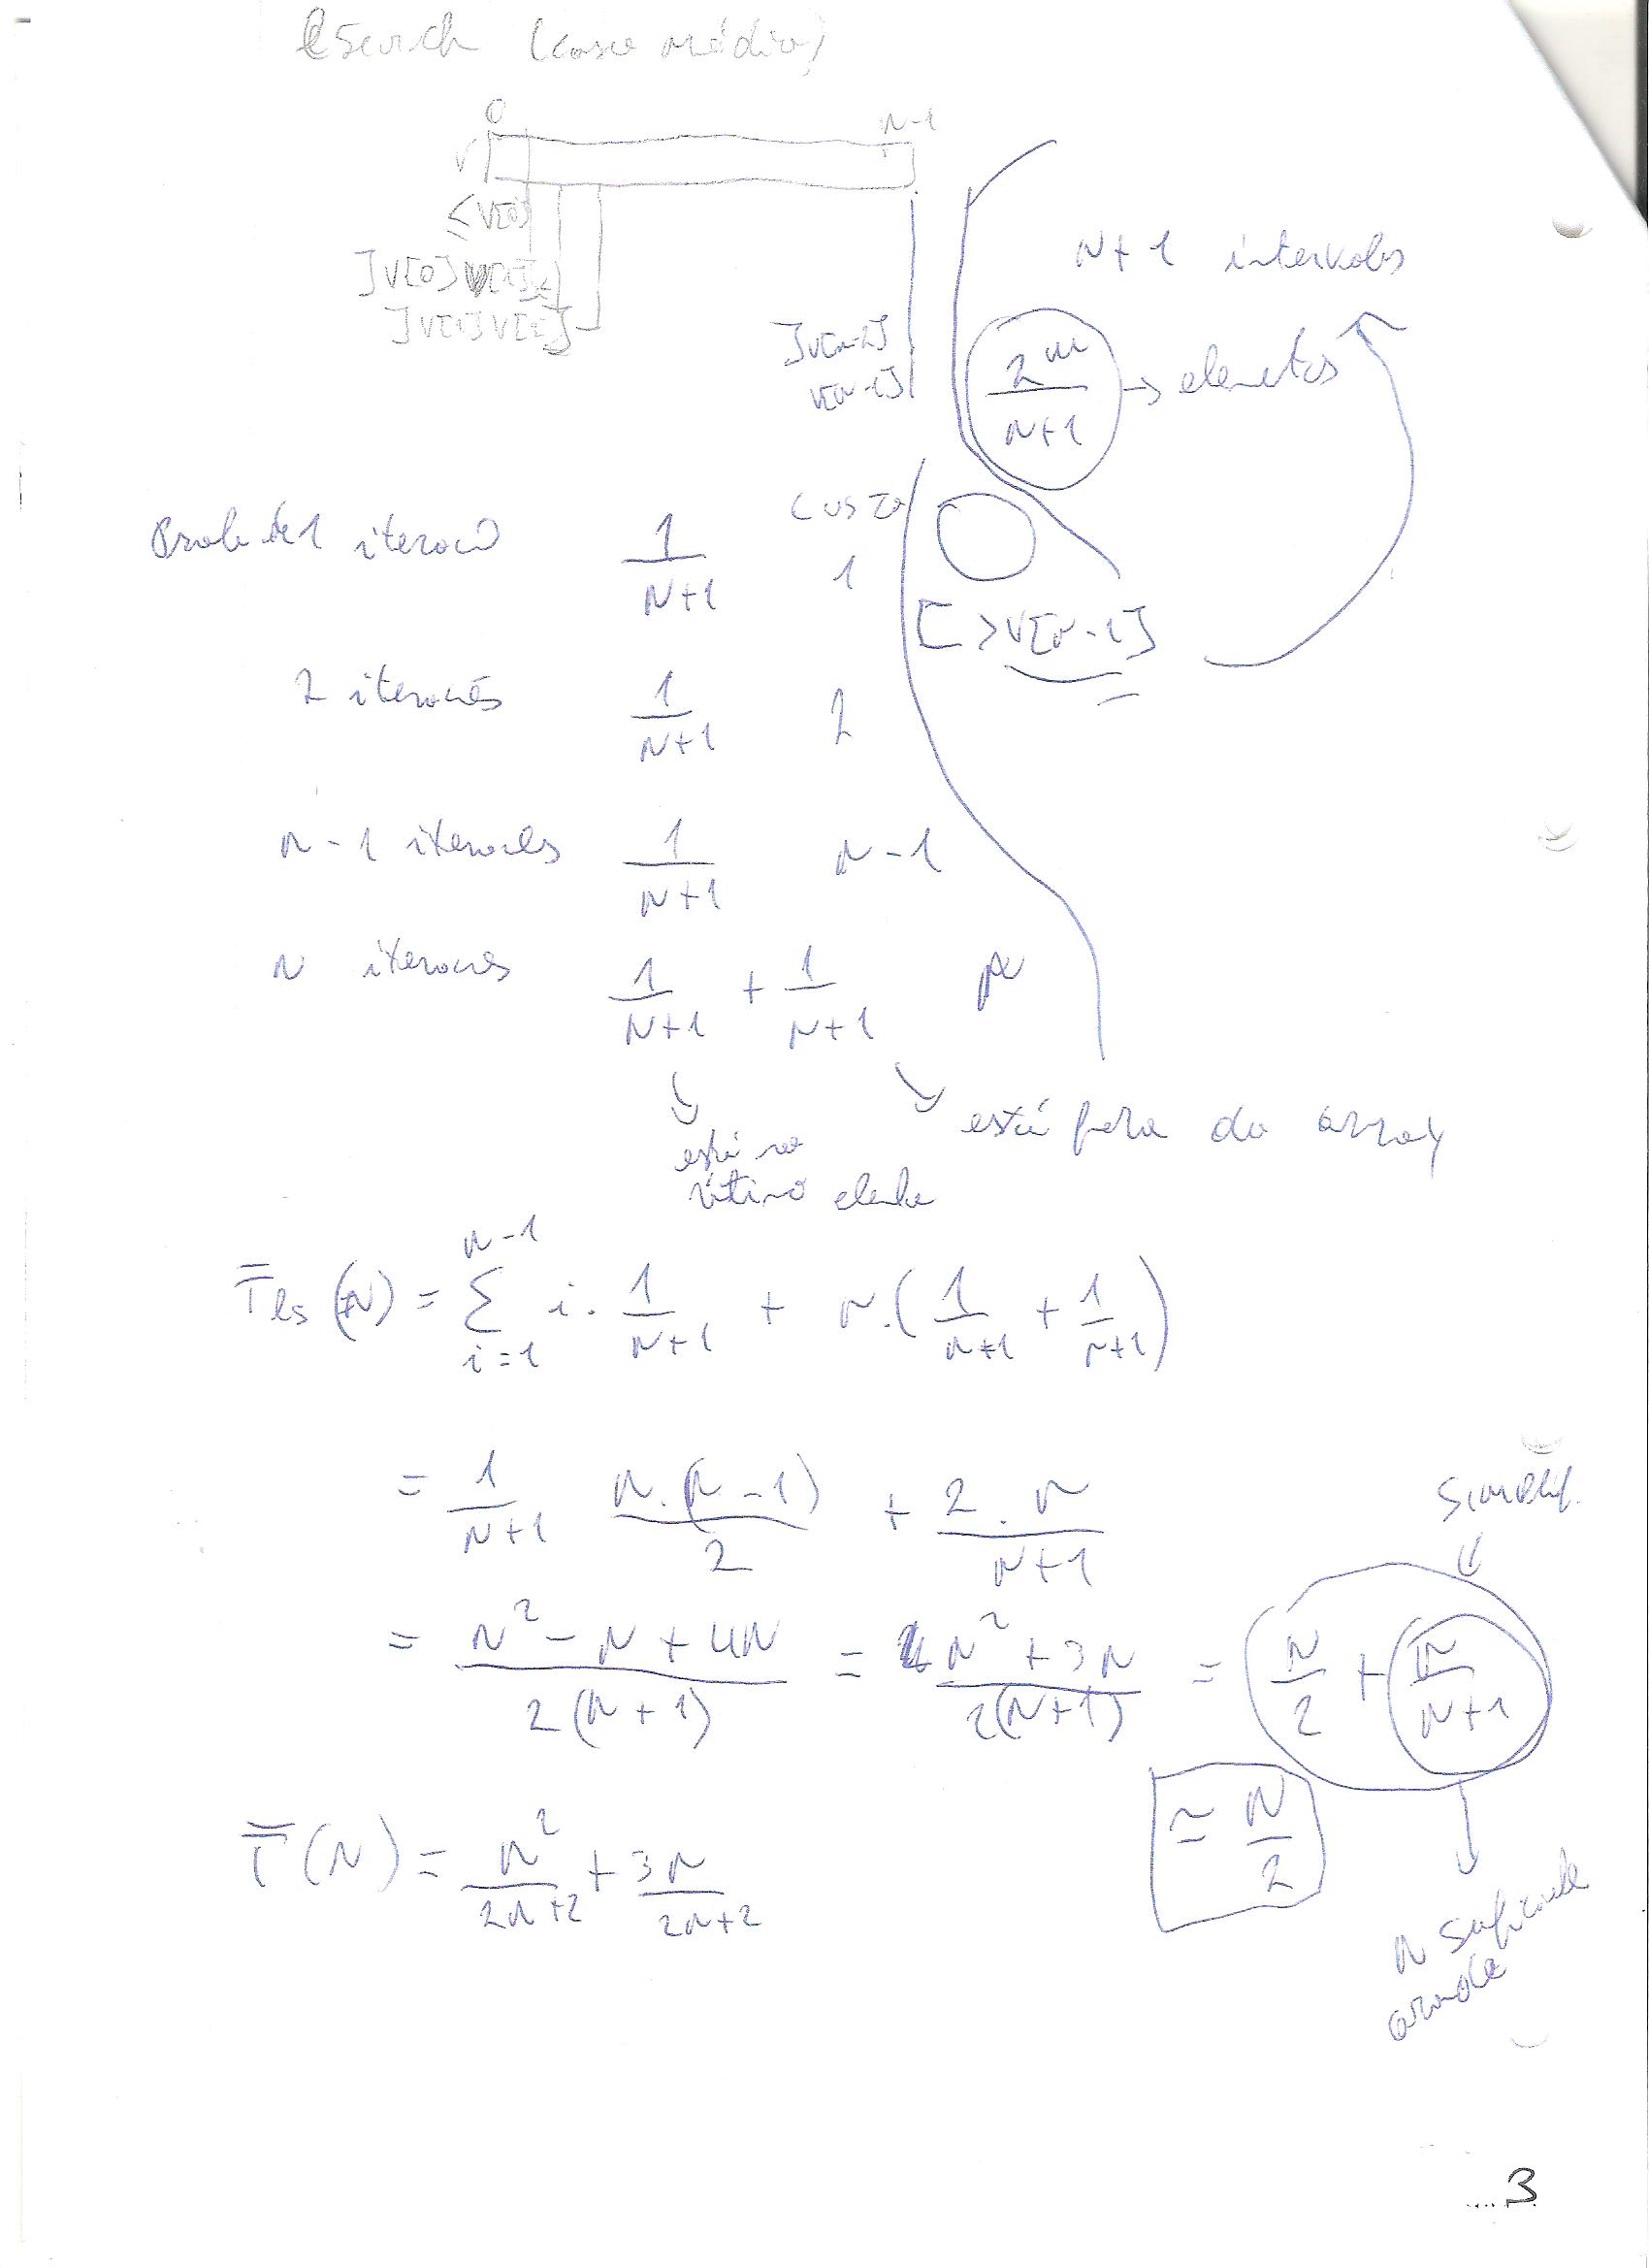 lSearch (caso médio)
0 N-1
V
≤ V[0]
]V[0] V[1]]
]V[1] V[2]]
]V[N-2]
V[N-1]]
N+1 intervalos
2^m / N+1 → elementos
[ > V[N-1] ]
custo
Prob de 1 iteração 1/N+1 1
2 iterações 1/N+1 2
N-1 iterações 1/N+1 N-1
N iterações 1/N+1 + 1/N+1 N
está no
último
está fora do array
T̄ls (N) = Σ_{i=1}^{N-1} i . 1/N+1 + N.(1/N+1 + 1/N+1)
= 1/N+1 N.(N-1)/2 + 2.N/N+1
simplif.
= N² - N + 4N / 2(N+1) = N² + 3N / 2(N+1) = N/2 + N/N+1
≃ N/2
T̄(N) = N²/2N+2 + 3N/2N+2
N
3